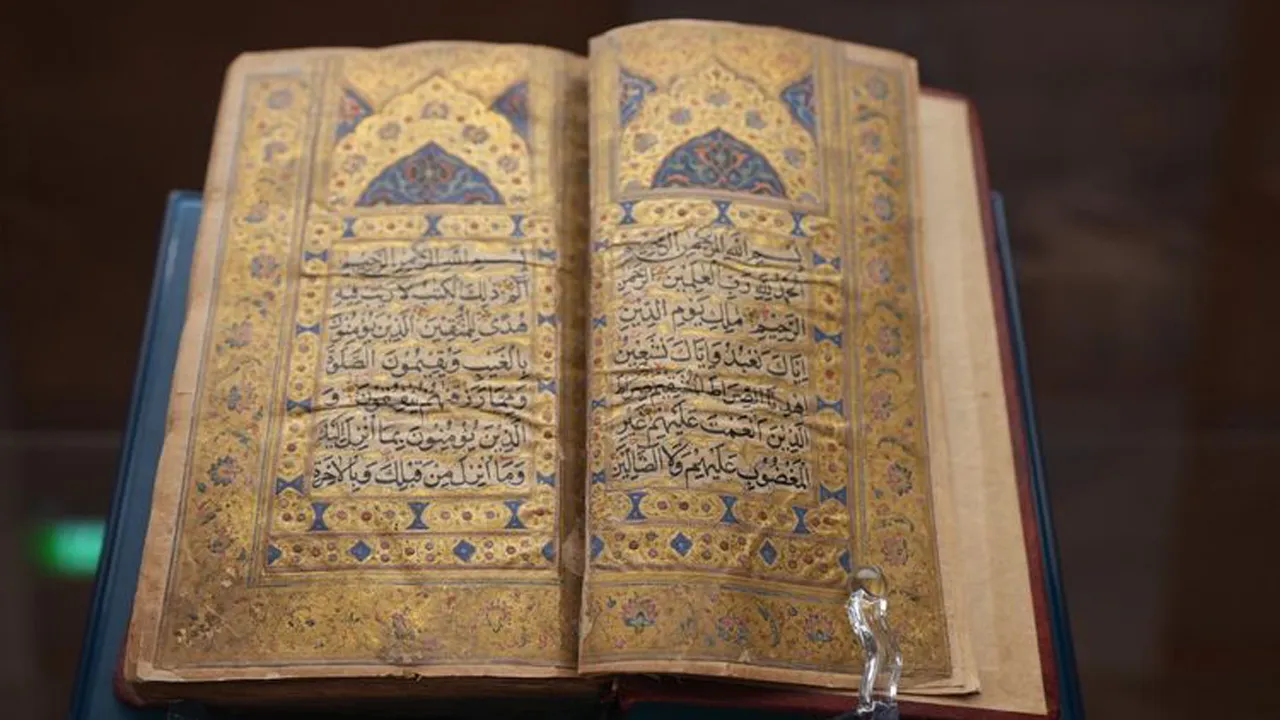 بِسْمِ اللهِ الرَّحْمٰنِ الرَّحِيْمِ
اَلْحَمْدُ لِلّٰهِ رَبِّ الْعٰلَمِيْنَ الرَّحْمٰنِ
الرَّحِيْمِ مٰلِكِ يَوْمِ الدِّيْنِ
اِيَّاكَ نَعْبُدُ وَاِيَّاكَ نَسْتَعِيْنُ
اِهْدِنَا الصِّرَاطَ الْمُسْتَقِيْمَ صِرَاطَ
الَّذِيْنَ اَنْعَمْتَ عَلَيْهِمْ غَيْرِ
الْمَغْضُوْبِ عَلَيْهِمْ وَلَا الضَّالِّيْنَ
بِسْمِ اللهِ الرَّحْمٰنِ الرَّحِيْمِ
الٓمٓ ذٰلِكَ الْكِتٰبُ لَا رَيْبَ فِيْهِ
هُدًى لِلْمُتَّقِيْنَ الَّذِيْنَ يُؤْمِنُوْنَ
بِالْغَيْبِ وَيُقِيْمُوْنَ الصَّلٰوةَ
وَمِمَّا رَزَقْنٰهُمْ يُنْفِقُوْنَ وَ
الَّذِيْنَ يُؤْمِنُوْنَ بِمَا اُنْزِلَ اِلَيْكَ
وَمَا اُنْزِلَ مِنْ قَبْلِكَ وَبِالْاٰخِرَةِ